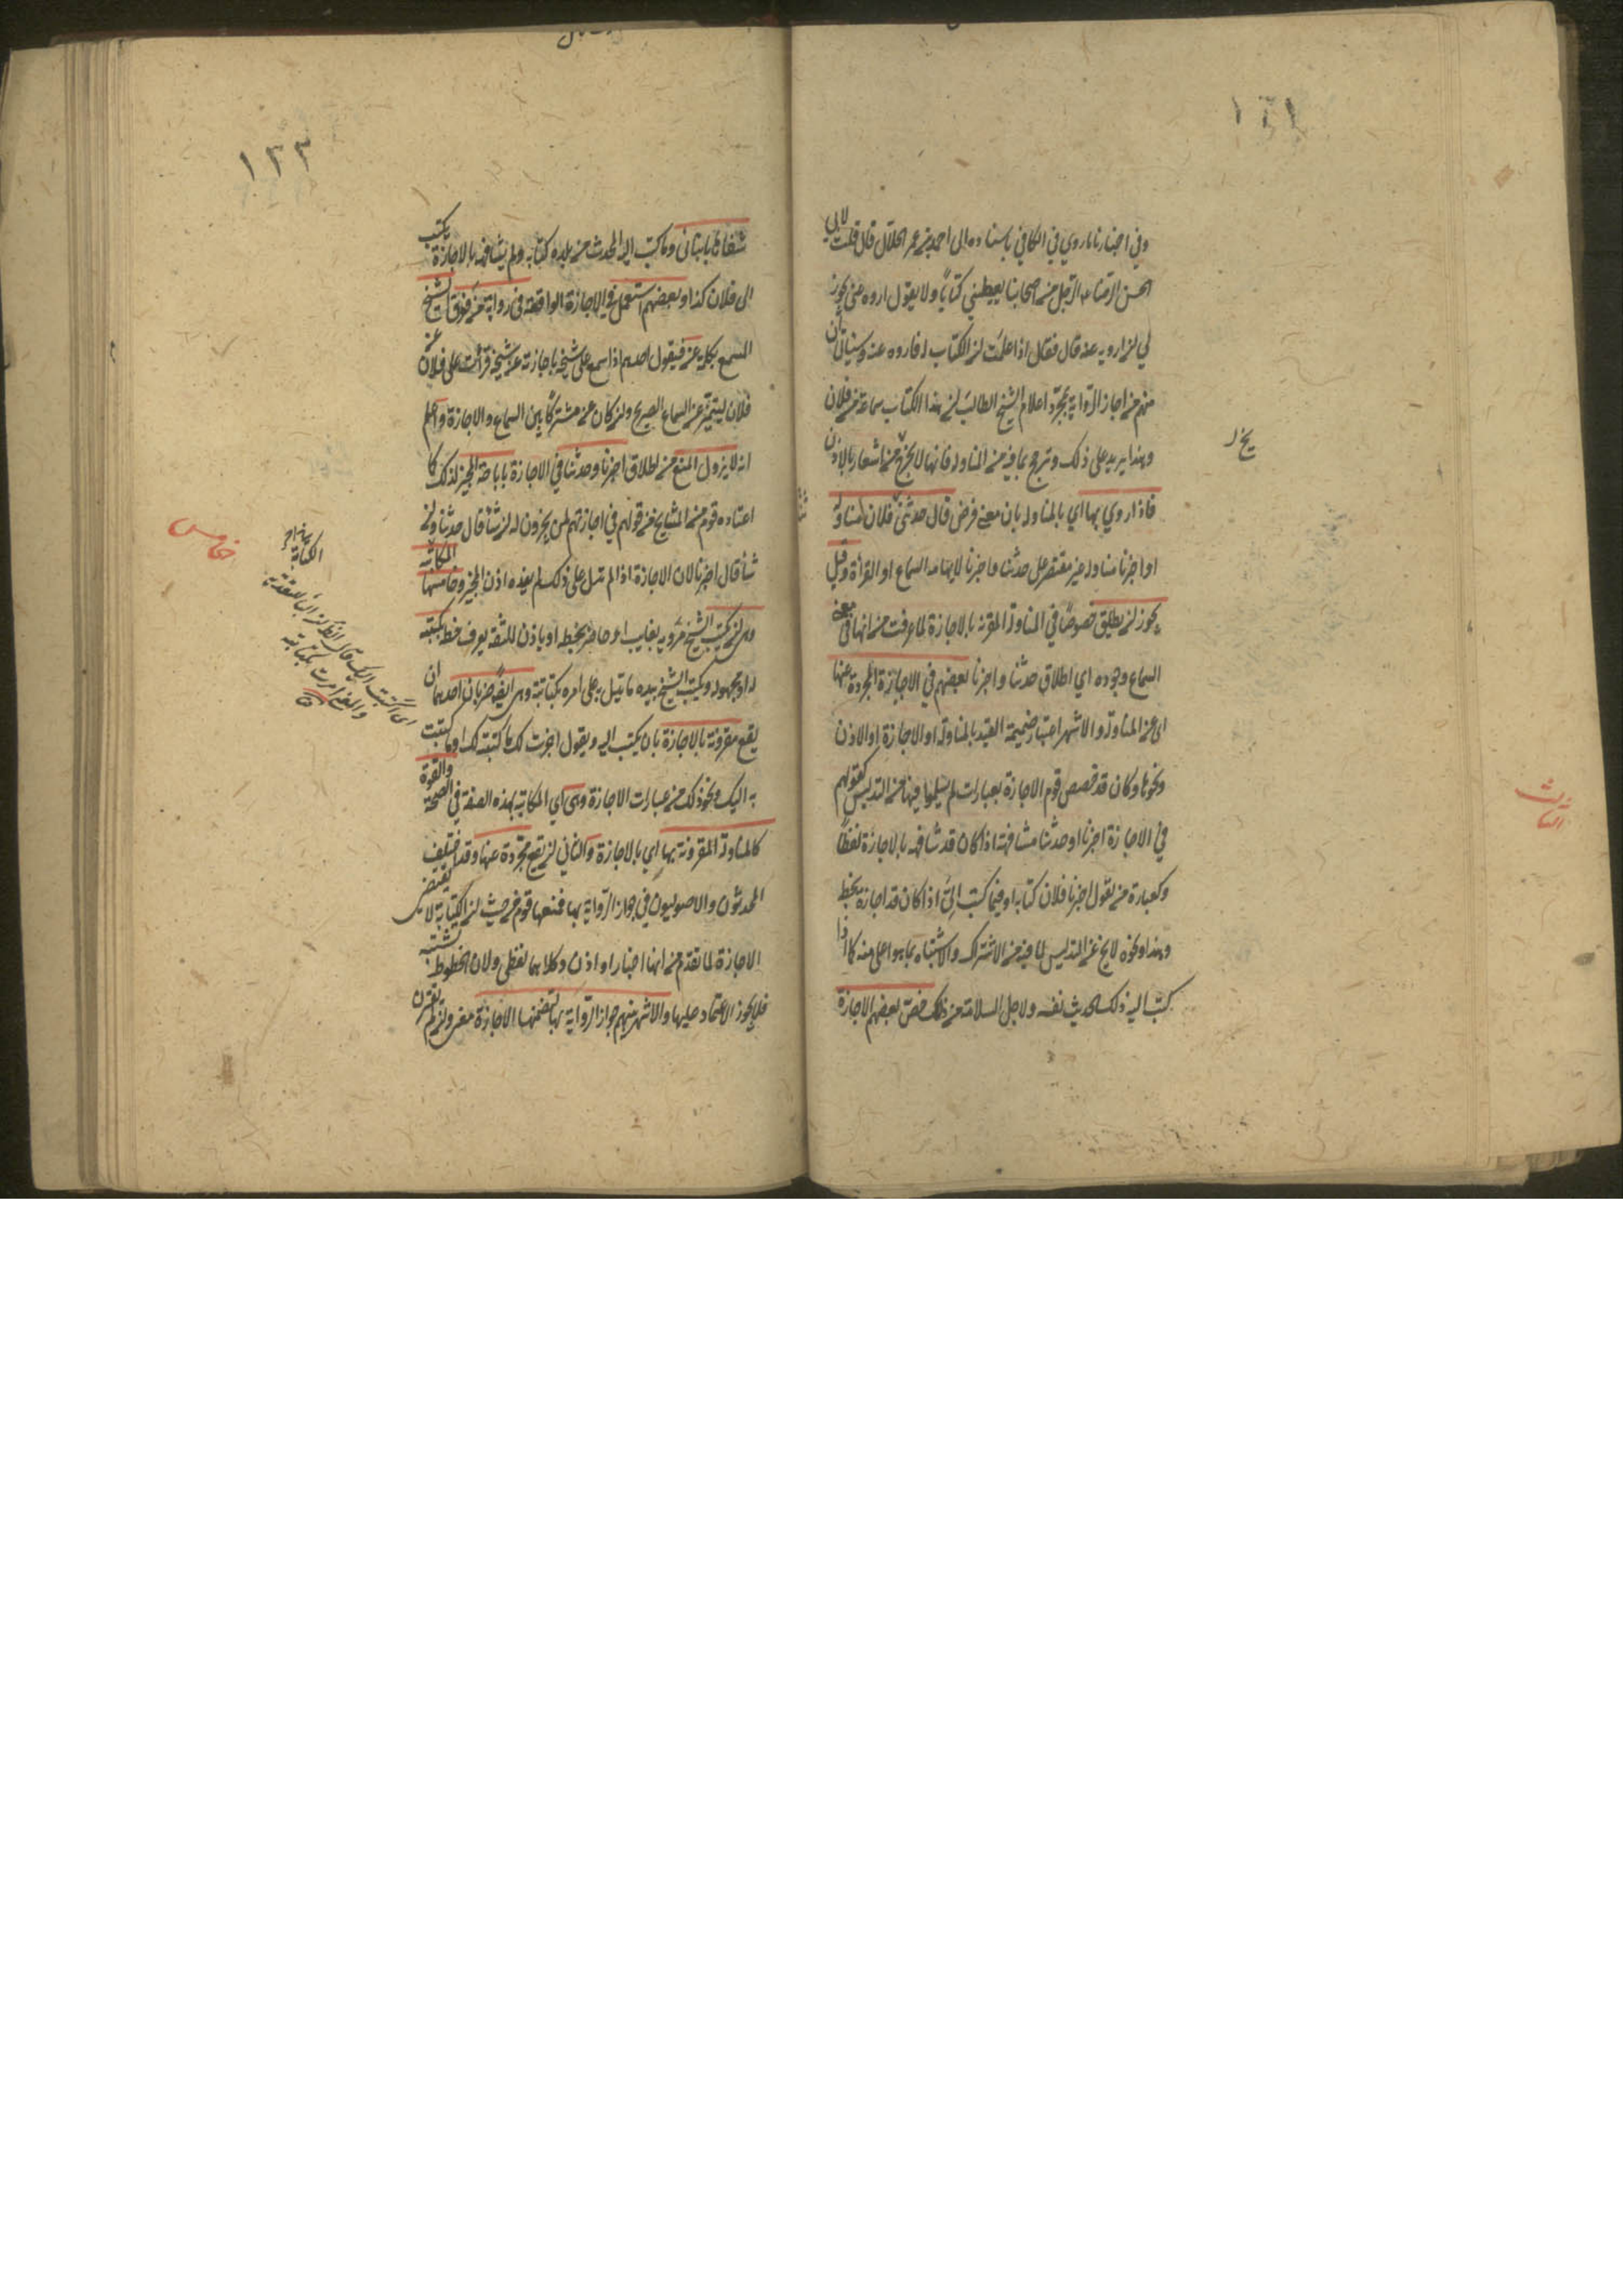 ١٢١
وفي اخبارنا ما روي في الكافي باسناده الى احمد بن عمر الحلال قال قلت لابي
الحسن الرضا ع الرجل من اصحابنا يعطيني كتابا ولا يقول اروه عني يجوز
لي ان ارويه عنه قال فقال اذا علمت ان الكتاب له فاروه عنه وسياتي ان
منهم من اجاز الرواية بمجرد اعلام الشيخ الطالب ان هذا الكتاب سماعه من فلان
وهذا يزيد على ذلك وترجح بما فيه من المناولة فانها لا تخ من اشعار بالاذن
فاذا روي بها اي بالمناولة باي معنى فرض قال حدثني فلان مناولة
او اخبرنا مناولة غير مقتصر على حدثنا واخبرنا لايهامه السماع او القرأة وقيل
يجوز ان يطلق خصوصا في المناولة المقترنة بالاجازة لما عرفت من انها في معنى
السماع وجوده اي اطلاق حدثنا واخبرنا بعضهم في الاجازة المجردة عنها
اي عن المناولة والاشهر اعتبار ضميمة القيد بالمناولة او الاجازة او الاذن
ونحوها وكان قد خصص قوم الاجازة بعبارات لم يسلموا فيها من التدليس كقولهم
في الاجازة اخبرنا او حدثنا مشافهة اذا كان قد شافهه بالاجازة لفظا
وكعبارة من يقول اخبرنا فلان كتابة او فيما كتب الي اذا كان قد اجازه بخط
وهذا ونحوه لا يخ عن التدليس لما فيه من الاشتراك والاشتباه بما هو اعلى منه كما اذا
كتب اليه ذلك الحديث نفسه ولاجل السلامة من ذلك خص بعضهم الاجازة
١٢٢
شفاها بانباني وما كتب اليه المحدث من بلده كتابة ولم يشافهه بالاجازة بكتب
الى فلان كذا وبعضهم استعمل في الاجازة الواقعة في رواية من فوق الشيخ
المسمع بكلمة عن فيقول احدهم اذا سمع على شيخ باجازته عن شيخه قرأت على فلان عن
فلان ليتميز عن السماع الصريح وان كان عن مشتركا بين السماع والاجازة واعلم
انه لا يزول المنع من اطلاق اخبرنا وحدثنا في الاجازة باباحة المجيز لذلك كما
اعتاده قوم من المشايخ من قولهم في اجازتهم لمن يجيزون له ان شأ قال حدثنا وان
شأ قال اخبرنا لان الاجازة اذا لم تدل على ذلك لم يفده اذن المجيز وخامسها المكاتبة
وهي ان يكتب الشيخ مرويه لغايب او حاضر بخطه او باذن لثقة يعرف خطه يكتبه
له او مجهول ويكتب الشيخ بيده ما يدل على امره بكتابته وهي ايض ضربان احدهما ان
يقع مقرونة بالاجازة بان يكتب اليه ويقول اجزت لك ما كتبته لك او ما كتبت
به اليك ونحو ذلك من عبارات الاجازة وهي اي المكاتبة بهذه الصفة في الصحة والقوة
كالمناولة المقرونة بها اي بالاجازة والثاني ان تقع مجردة عنها وقد اختلف
المحدثون والاصوليون في جواز الرواية بها فمنعها قوم من حيث ان الكتابة لا تقتضي
الاجازة لما تقدم من انها اخبار او اذن وكلاهما لفظي ولان الخطوط تشتبه
فلا يجوز الاعتماد عليها والاشهر بينهم جواز الرواية بها لتضمنها الاجازة معنى وان لم تقترن
خامس